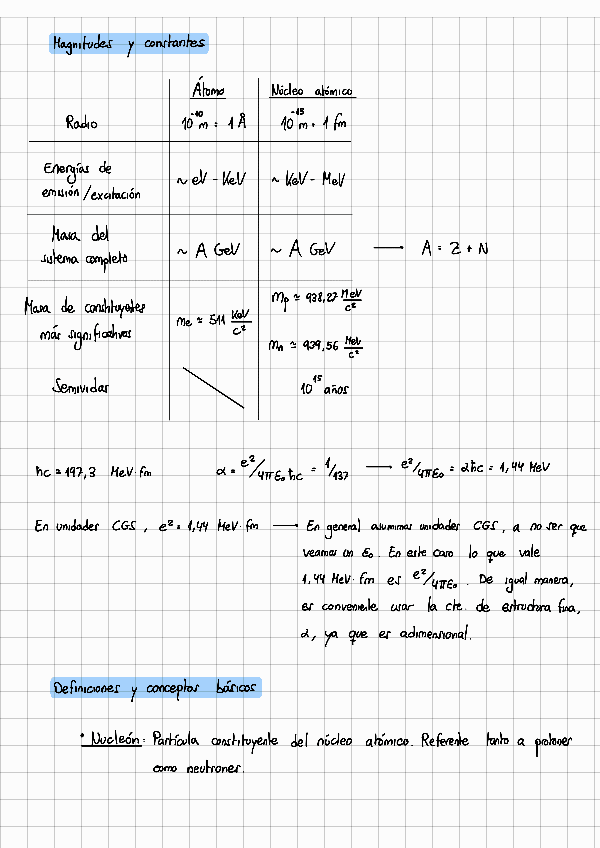 Magnitudes y constantes
Átomo Núcleo atómico
Radio 10⁻¹⁰ m = 1 Å 10⁻¹⁵ m = 1 fm
Energías de
emisión/excitación ~ eV - KeV ~ KeV - MeV
Masa del
sistema completo ~ A GeV ~ A GeV → A = Z + N
Masa de constituyentes
más significativos me ≃ 511 KeV/c² mp ≃ 938,27 MeV/c²
mn ≃ 939,56 MeV/c²
Semividas 10¹⁵ años
ħc = 197,3 MeV·fm α = e²/4πε₀ħc = 1/137 → e²/4πε₀ = αħc = 1,44 MeV
En unidades CGS, e² = 1,44 MeV·fm → En general asumimos unidades CGS, a no ser que
veamos un ε₀. En este caso lo que vale
1,44 MeV·fm es e²/4πε₀. De igual manera,
es conveniente usar la cte. de estructura fina,
α, ya que es adimensional.
Definiciones y conceptos básicos
· Nucleón: Partícula constituyente del núcleo atómico. Referente tanto a protones
como neutrones.